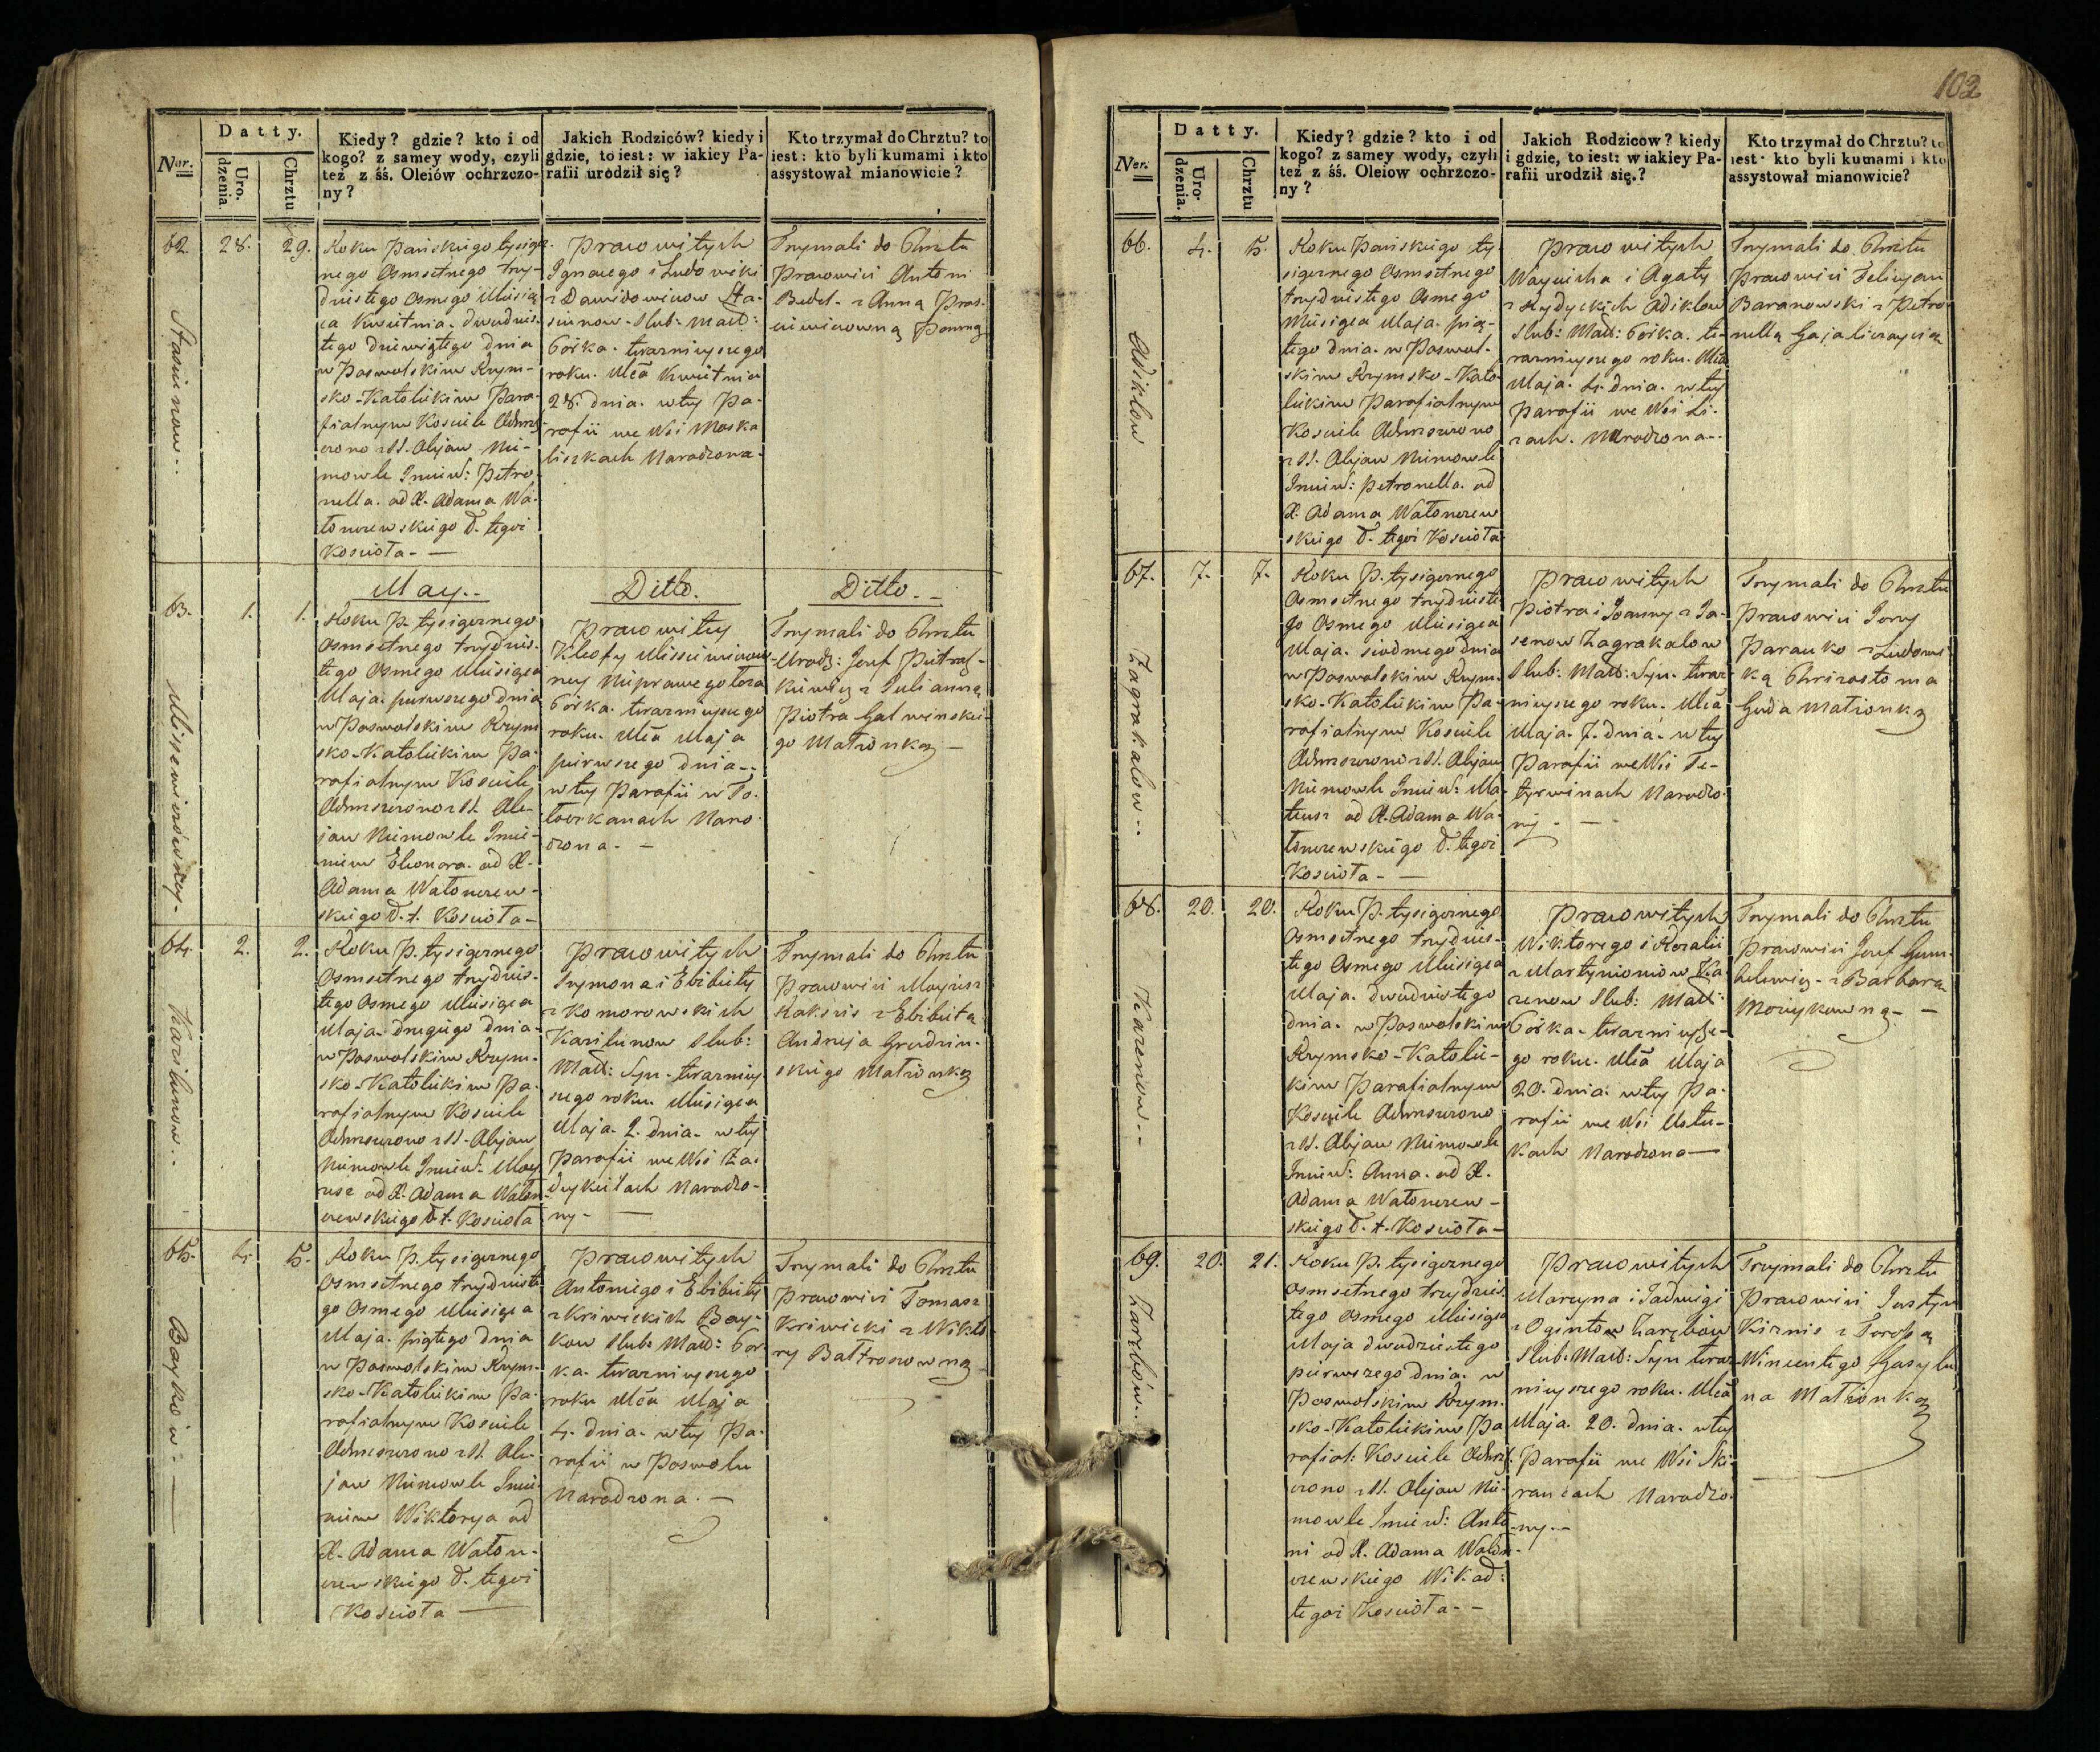 102
Datty.
Ner.
Uro-
dzenia.
Chrztu
Kiedy? gdzie? kto i od
kogo? z samey wody, czyli
też z śś. Oleiów ochrzczo-
ny?
Jakich Rodziców? kiedy i
gdzie, to iest: w iakiey Pa-
rafii urodził się?
Kto trzymał do Chrztu? to
iest: kto byli kumami i kto
assystował mianowicie?
62.
28.
29.
Stasiunow..
Roku Pańskiego tysiącz-
nego Osmsetnego trzy-
dziestego Osmego Miesią-
ca Kwietnia. dwudzies-
tego dziewiątego dnia
w Poswolskim Rzym-
sko-Katolickim Para-
fialnym Kosciele Ochrz-
czono z SS. Olejow Nie-
mowle Imieu: Petro-
nella. od X. Adama Wa-
tonczewskiego d. tegoż
Kosciola. —
Prawowitych
Ignacego i Ludowiki
z Dawidowiczow Sta-
siunow. Slub: Malż:
Córka. teraznieyszego
roku. Mca Kwietnia
28. dnia. w tey Pa-
rafii we Wsi Moska
liszkach Narodzona.
Trzymali do Chrztu
Prawowici Antoni
Budel. z Anną Pros-
ciewiczowną Panną
May..
Ditto.
Ditto. -
63.
1.
1.
Misiewiczówney.
Roku P. tysiącznego
Osmsetnego trzydzies-
tego Osmego Miesiąca
Maja. pierwszego dnia
w Poswolskim Rzym
sko-Katolickim Pa-
rafialnym Kosciele
Ochrzczono z SS. Ole-
jow Niemowle Imie-
niem Eleonora. od X.
Adama Watonczew-
skiego d. t. Kosciola —
Prawowitey
Kleofy Missiewiczow-
ney Nieprawego loza
Córka. teraznieyszego
roku. Mca Maja
pierwszego dnia..
w tey Parafii w To-
loczkanach Naro-
dzona. —
Trzymali do Chrztu
Urodz: Jozef Pietraż-
kiewicz z Julianną
Piotra Galwinskie-
go Małżonką —
64.
2.
2.
Karilunow..
Roku P. tysiącznego
Osmsetnego trzydzies-
tego Osmego Miesiąca
Maja. drugiego dnia.
w Poswolskim Rzym-
sko-Katolickim Pa-
rafialnym Kosciele
Ochrzczono z SS. Olejow
Niemowle Imieu: May
rusz od X. Adama Waton-
czewskiego d. t. Kosciola
Prawowitych
Szymona i Elzbiety
z Komorowskich
Karilunow Slub:
Malż: Syn. terazniey
szego roku. Miesiąca
Maja. 2. dnia. w tey
Parafii we Wsi Za-
deykielach Narodzo-
ny. —
Trzymali do Chrztu
Prawowici
z Elzbietą
Andrzeja Grudzin-
skiego Małżonką
65.
4.
5.
Baykow: —
Roku P. tysiącznego
Osmsetnego trzydzieste
go Osmego Miesiąca
Maja. piątego dnia
w Poswolskim Rzym-
sko-Katolickim Pa-
rafialnym Kosciele
Ochrzczono z SS. Ole-
jow Niemowle Imie-
niem Wiktorya od
X. Adama Waton-
czewskiego d. tegoż
Kosciola —
Prawowitych
Antoniego i Elzbiety
z Kriwickich Bay-
kow Slub: Malż: Cor-
ka. teraznieyszego
roku Mca Maja
4. dnia. w tey Pa-
rafii w Poswolu
Narodzona. —
Trzymali do Chrztu
Prawowici Tomasz
Kriwicki z Wikto-
ry Baltronowną
Datty.
Ner.
Uro-
dzenia.
Chrztu
Kiedy? gdzie? kto i od
kogo? z samey wody, czyli
też z śś. Oleiow ochrzczo-
ny?
Jakich Rodzicow? kiedy
i gdzie, to iest: w iakiey Pa-
rafii urodził się.?
Kto trzymał do Chrztu? to
iest: kto byli kumami i kto
assystował mianowicie?
66.
4.
5.
Adiklow
Roku Pańskiego ty-
siącznego Osmsetnego
trzydziestego Osmego
Miesiąca Maja. pią-
tego dnia. w Poswol-
skim Rzymsko-Kato-
lickim Parafialnym
Kosciele Ochrzczono
z SS. Olejow Niemowle
Imieu: Petronella. od
X. Adama Watonczew
skiego d. tegoż Kosciola
Prawowitych
Woyciecha i Agaty
z Rydyckich Adiklow
Slub: Malż: Córka. te-
raznieyszego roku. Mca
Maja. 4. dnia. w tey
Parafii we Wsi Li-
zach. Narodzona..
Trzymali do Chrztu
Prawowici Felicyan
Baranowski z Petro-
nellą
67.
7.
7.
Zagrakalow..
Roku P. tysiącznego
Osmsetnego trzydzieste
go Osmego Miesiąca
Maja. siodmego dnia
w Poswolskim Rzym-
sko-Katolickim Pa-
rafialnym Kosciele
Ochrzczono z SS. Olejow
Niemowle Imieu: Ma-
teusz od X. Adama Wa-
tonczewskiego d. tegoż
Kosciola. —
Prawowitych
Piotra i Joanny z Ja-
senow Zagrakalow
Slub: Malż: Syn. teraz-
nieyszego roku. Mca
Maja. 7. dnia. w tey
Parafii we Wsi Te-
tyrwinach Narodzo-
ny. —
Trzymali do Chrztu
Prawowici Jerzy
Paranko z Ludowi-
ką Chrizostoma
Guda Małżonką
68.
20.
20.
Kazenow..
Roku P. tysiącznego
Osmsetnego trzydzies-
tego Osmego Miesiąca
Maja. dwudziestego
dnia. w Poswolskim
Rzymsko-Katolic-
kim Parafialnym
Kosciele Ochrzczono
z SS. Olejow Niemowle
Imieu: Anna. od X.
Adama Watonczew-
skiego d. t. Kosciola —
Prawowitych
Wiktorego i Rozalii
z Martynioniow Ka-
zenow Slub: Malż:
Córka. teraznieysze-
go roku. Mca Maja
20. dnia. w tey Pa-
rafii we Wsi Ustu-
kach Narodzona —
Trzymali do Chrztu
Prawowici Jozef Gum-
belewicz. z Barbarą
Mozeykowną. —
69.
20.
21.
Zarębow..
Roku P. tysiącznego
Osmsetnego trzydzies-
tego Osmego Miesiąca
Maja dwudziestego
pierwszego dnia. w
Poswolskim Rzym-
sko-Katolickim Pa
rafial: Kosciele Ochrz-
czono z SS. Olejow Nie-
mowle Imieu: Anto-
ni od X. Adama Waton-
czewskiego Wikad:
tegoż Kosciola. -
Prawowitych
Marcyna i Jadwigi
z Ogintow Zarębow
Slub: Malż: Syn teraz-
nieyszego roku. Mca
Maja. 20. dnia. w tey
Parafii we Wsi Ski-
rancach Narodzo-
ny. —
Trzymali do Chrztu
Prawowici Justyn
Kiznis z
Wincentego Gasylu
na Małżonką